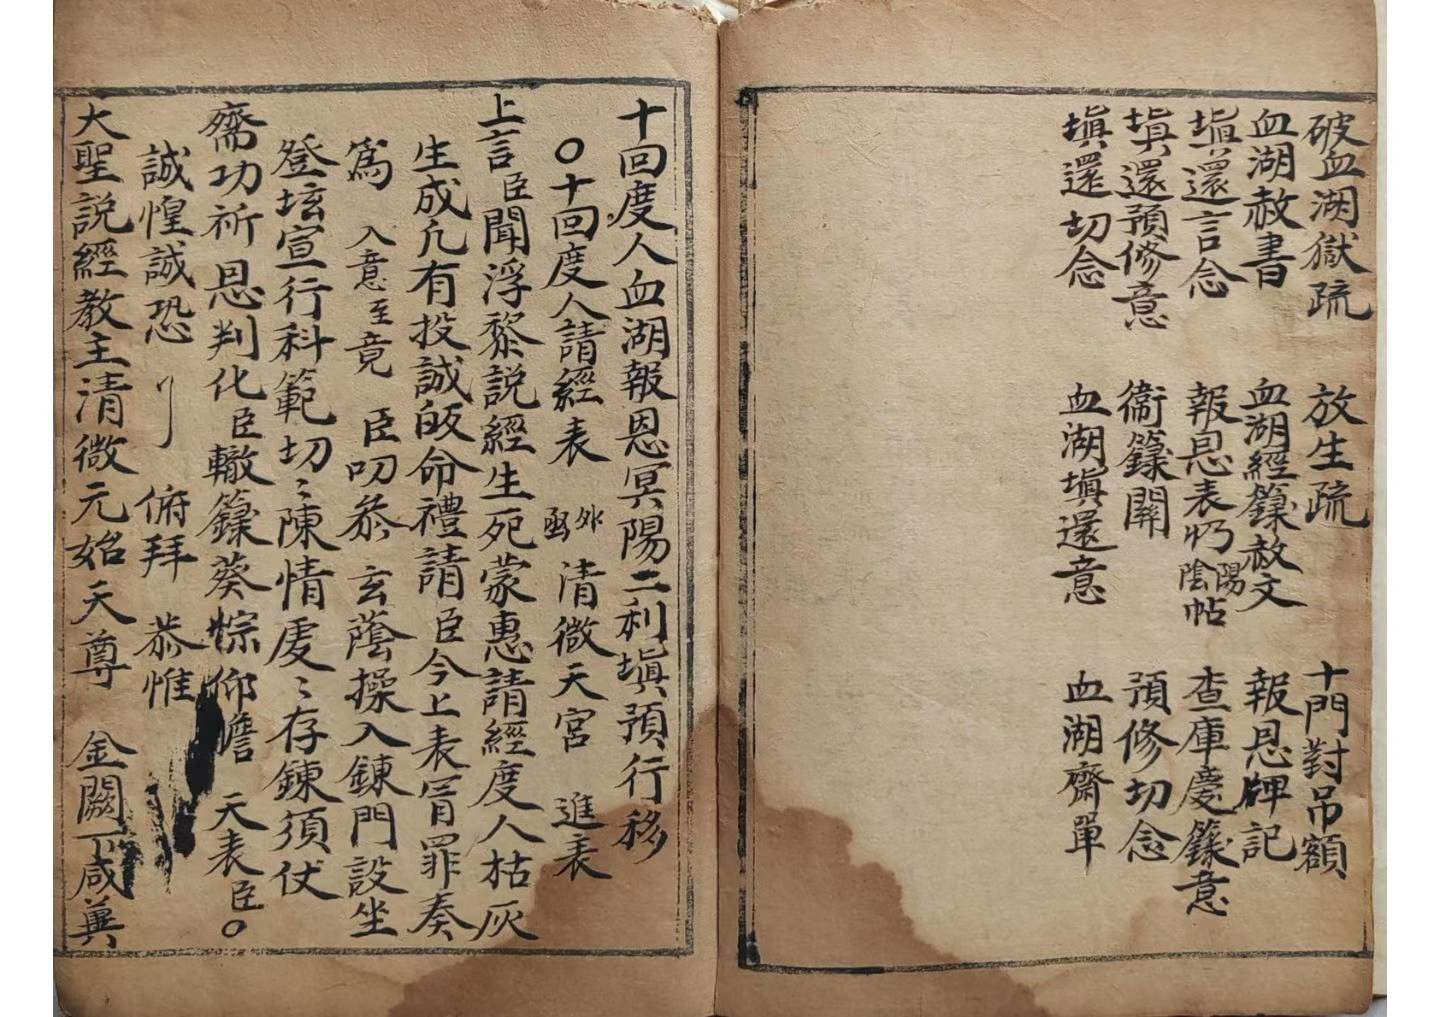 破血湖獄疏 放生疏 十門對吊額
血湖赦書 血湖經籙赦文 報恩牌記
填還言念 報恩表 陰陽帖 查庫慶籙意
填還預修意 衞籙關 預修切念
填還切念 血湖填還意 血湖齋單
十回度人血湖報恩冥陽二利填預行移
〇十回度人請經表 外函 清微天宮 進表
上言臣聞浮黎説經生死蒙惠請經度人枯灰
生成凢有投誠皈命禮請臣今上表冐罪奏
爲 入意至竟 臣叨叅 玄蔭操入鍊門設坐
登坛宣行科範切〻陳情䖏〻存鍊須伏
齋功祈 恩判化臣轍籙葵悰仰瞻 天表臣〇
誠惶誠恐 刂 俯拜 恭惟
大聖説經教主清微元始天尊 金闕丅咸